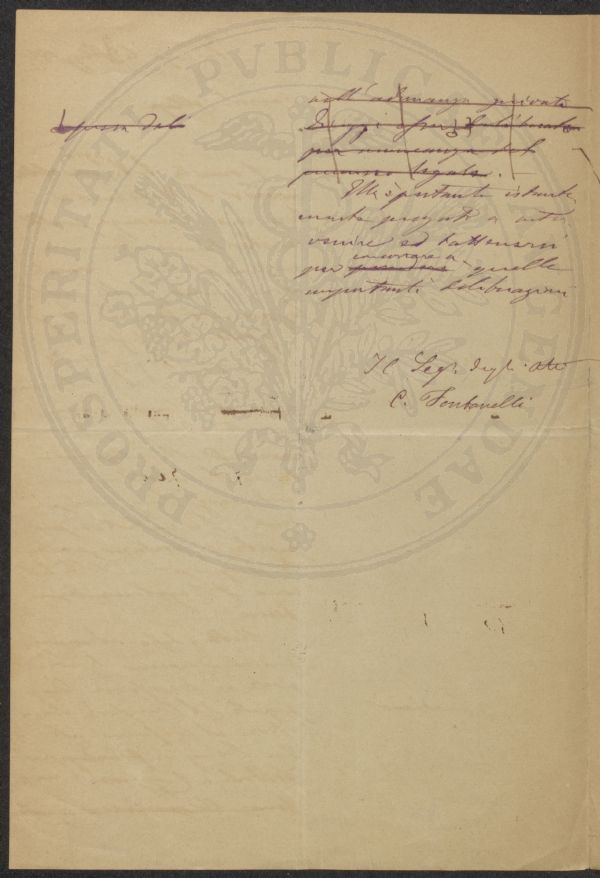 PROSPERITATI PVBLIC AGENDAE
nell'adunanza privata
di oggi
per mancanza del
numero legale. –
Ella è pertanto istante-
mente pregata a inter-
venire ed trattenersi
per quelle
importanti deliberazioni
Il Segr. degli Atti
C. Fontanelli